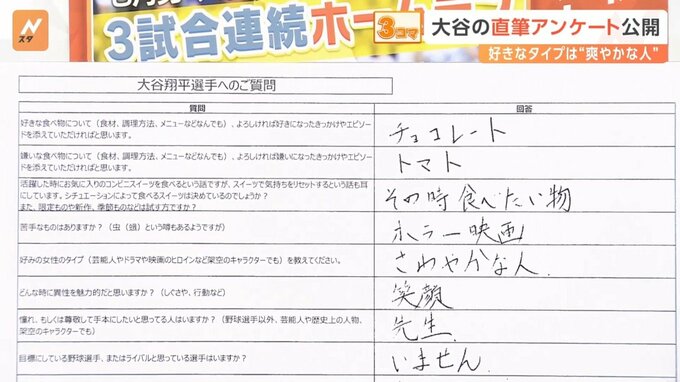 Nスタ
3試合連続ホームラン
3コマ
大谷の直筆アンケート公開
好きなタイプは“爽やかな人”
大谷翔平選手へのご質問
質問
回答
好きな食べ物について(食材、調理方法、メニューなどなんでも)、よろしければ好きになったきっかけやエピソードを添えていただければと思います。
チョコレート
嫌いな食べ物について(食材、調理方法、メニューなどなんでも)、よろしければ嫌いになったきっかけやエピソードを添えていただければと思います。
トマト
活躍した時にお気に入りのコンビニスイーツを食べるという話ですが、スイーツで気持ちをリセットするという話も耳にしています。シチュエーションによって食べるスイーツは決めているのでしょうか?
また、限定ものや新作、季節ものなどは試す方ですか?
その時食べたい物
苦手なものはありますか?(虫(蛾)という噂もあるようですが)
ホラー映画
好みの女性のタイプ(芸能人やドラマや映画のヒロインなど架空のキャラクターでも)を教えてください。
さわやかな人.
どんな時に異性を魅力的だと思いますか?(しぐさや、行動など)
笑顔
憧れ、もしくは尊敬して手本にしたいと思ってる人はいますか?(野球選手以外、芸能人や歴史上の人物、架空のキャラクターでも)
先生.
目標にしている野球選手、またはライバルと思っている選手はいますか?
いません.